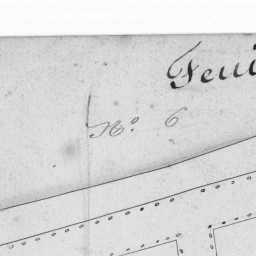 Feui
N.º 6